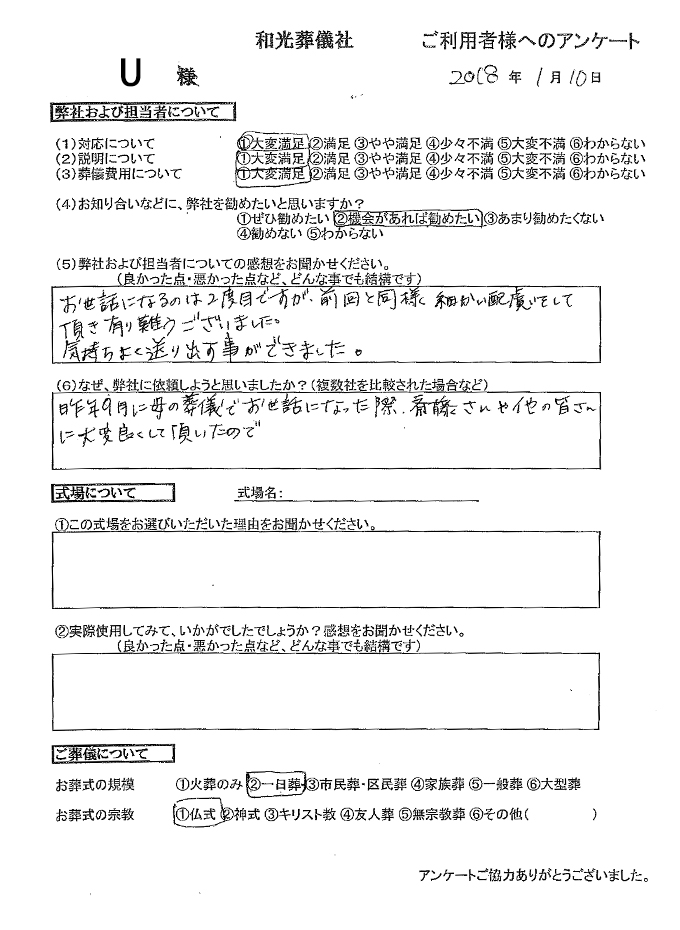 和光葬儀社 ご利用者様へのアンケート
U 様 2018 年 1 月 10 日
弊社および担当者について
(1)対応について ①大変満足 ②満足 ③やや満足 ④少々不満 ⑤大変不満 ⑥わからない
(2)説明について ①大変満足 ②満足 ③やや満足 ④少々不満 ⑤大変不満 ⑥わからない
(3)葬儀費用について ①大変満足 ②満足 ③やや満足 ④少々不満 ⑤大変不満 ⑥わからない
(4)お知り合いなどに、弊社を勧めたいと思いますか?
①ぜひ勧めたい ②機会があれば勧めたい ③あまり勧めたくない
④勧めない ⑤わからない
(5)弊社および担当者についての感想をお聞かせください。
(良かった点・悪かった点など、どんな事でも結構です)
お世話になるのは2度目ですが、前回と同様、細かい配慮をして
頂き有り難うございました。
気持ちよく送り出す事ができました。
(6)なぜ、弊社に依頼しようと思いましたか?(複数社を比較された場合など)
昨年9月に母の葬儀でお世話になった際、斎藤さんや他の皆さん
に大変良くして頂いたので
式場について 式場名:
①この式場をお選びいただいた理由をお聞かせください。
②実際使用してみて、いかがでしたでしょうか?感想をお聞かせください。
(良かった点・悪かった点など、どんな事でも結構です)
ご葬儀について
お葬式の規模 ①火葬のみ ②一日葬 ③市民葬・区民葬 ④家族葬 ⑤一般葬 ⑥大型葬
お葬式の宗教 ①仏式 ②神式 ③キリスト教 ④友人葬 ⑤無宗教葬 ⑥その他( )
アンケートご協力ありがとうございました。